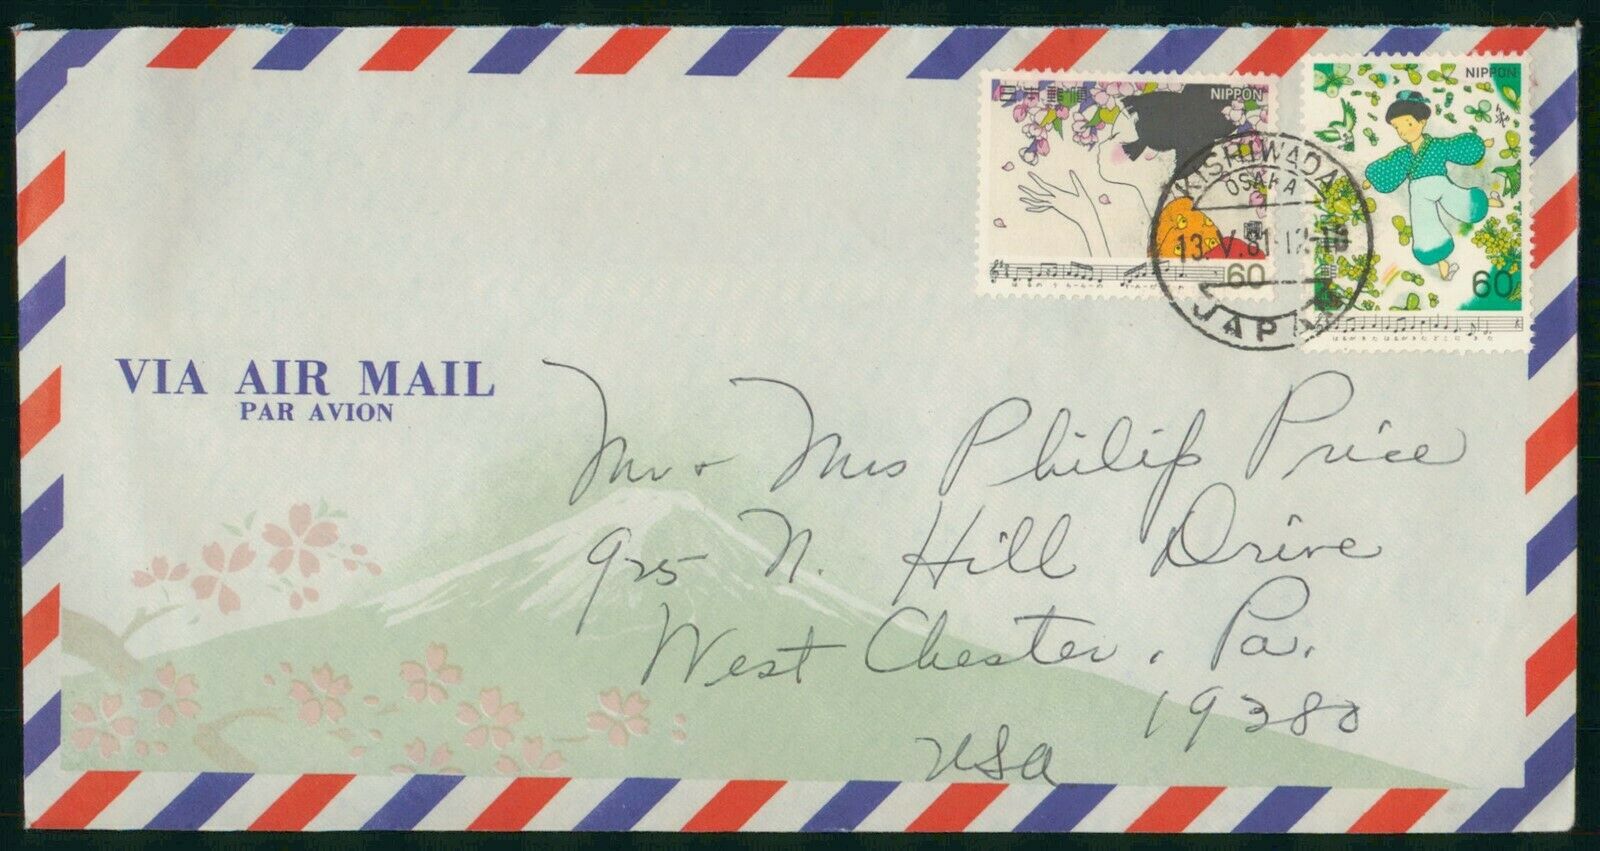 日本郵便
NIPPON
はるのうららーの
60
NIPPON
60
はるがきた はるがきた どこに きた
KISHIWADA
OSAKA
13.V.81.12-18
JAPAN
VIA AIR MAIL
PAR AVION
Mr + Mrs Philip Price
925 N. Hill Drive
West Chester, Pa.
19380
USA